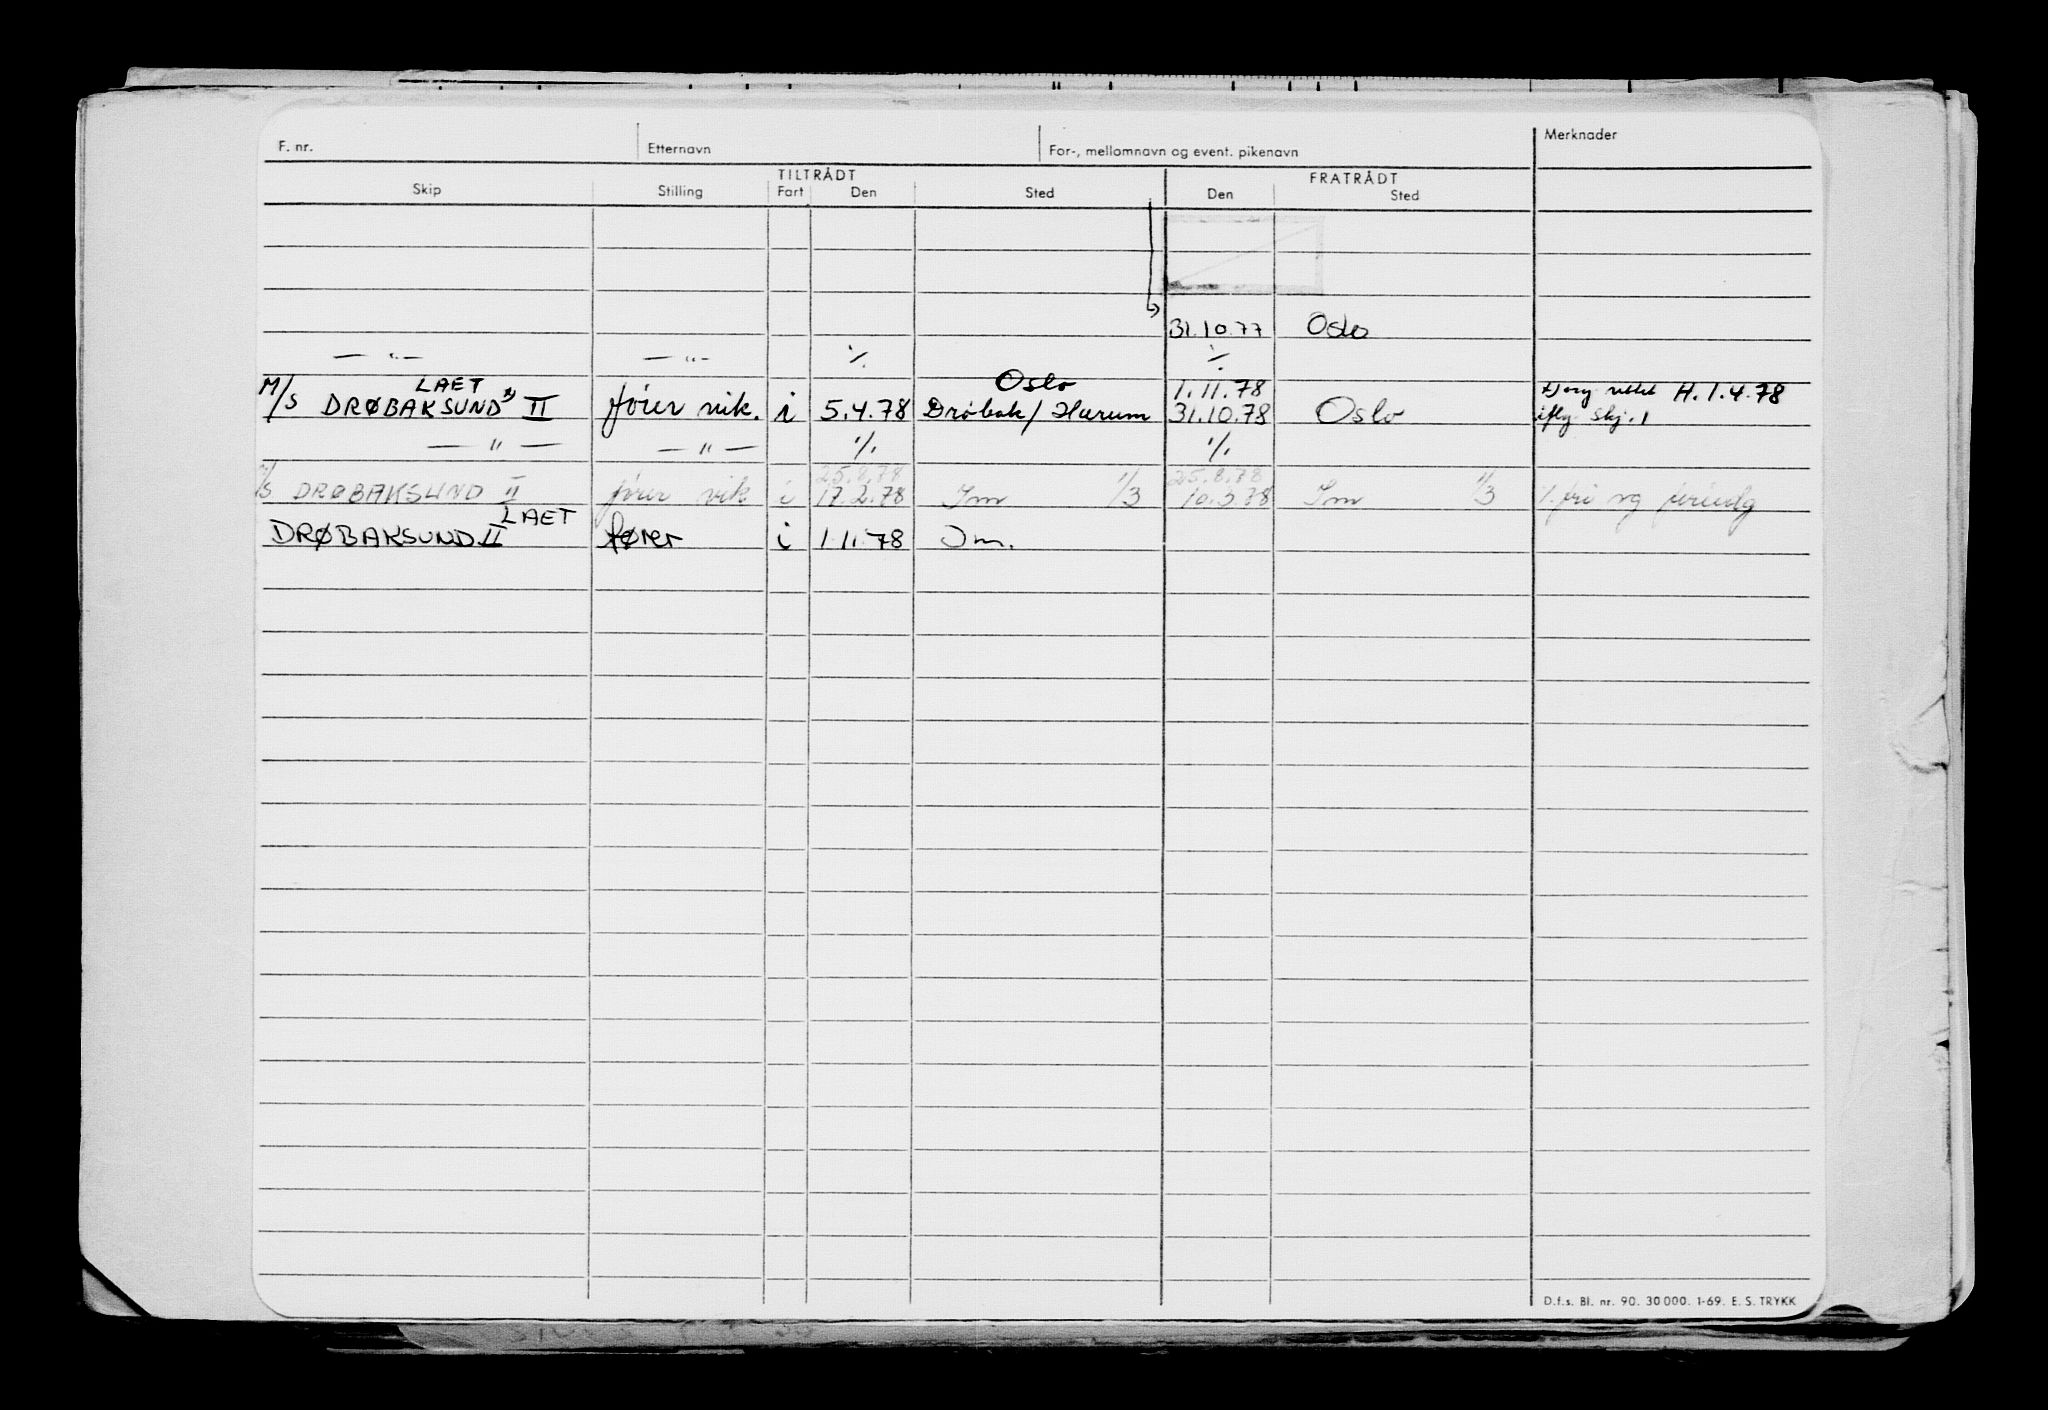 F. nr. Etternavn For-, mellomnavn og event. pikenavn Merknader
TILTRÅDT FRATRÅDT
Skip Stilling Fart Den Sted Den Sted
31.10.77 Oslo
— " — — " — ٪ ٪
LAET Oslo 1.11.78 H. 1.4.78
M/S DRØBAKSUND x) II fører vik. i 5.4.78 Drøbak / Hurum 31.10.78 Oslo iflg. skj. 1
— " — — " — ٪ ٪
25.8.78 25.8.78
M/S DRØBAKSUND II fører vik i 17.2.78 Im 1/3 10.3.78 Im 1/3 fri og
LAET
DRØBAKSUND II fører i 1.11.78 Im.
D.f.s. Bl. nr. 90. 30 000. 1-69. E. S. TRYKK